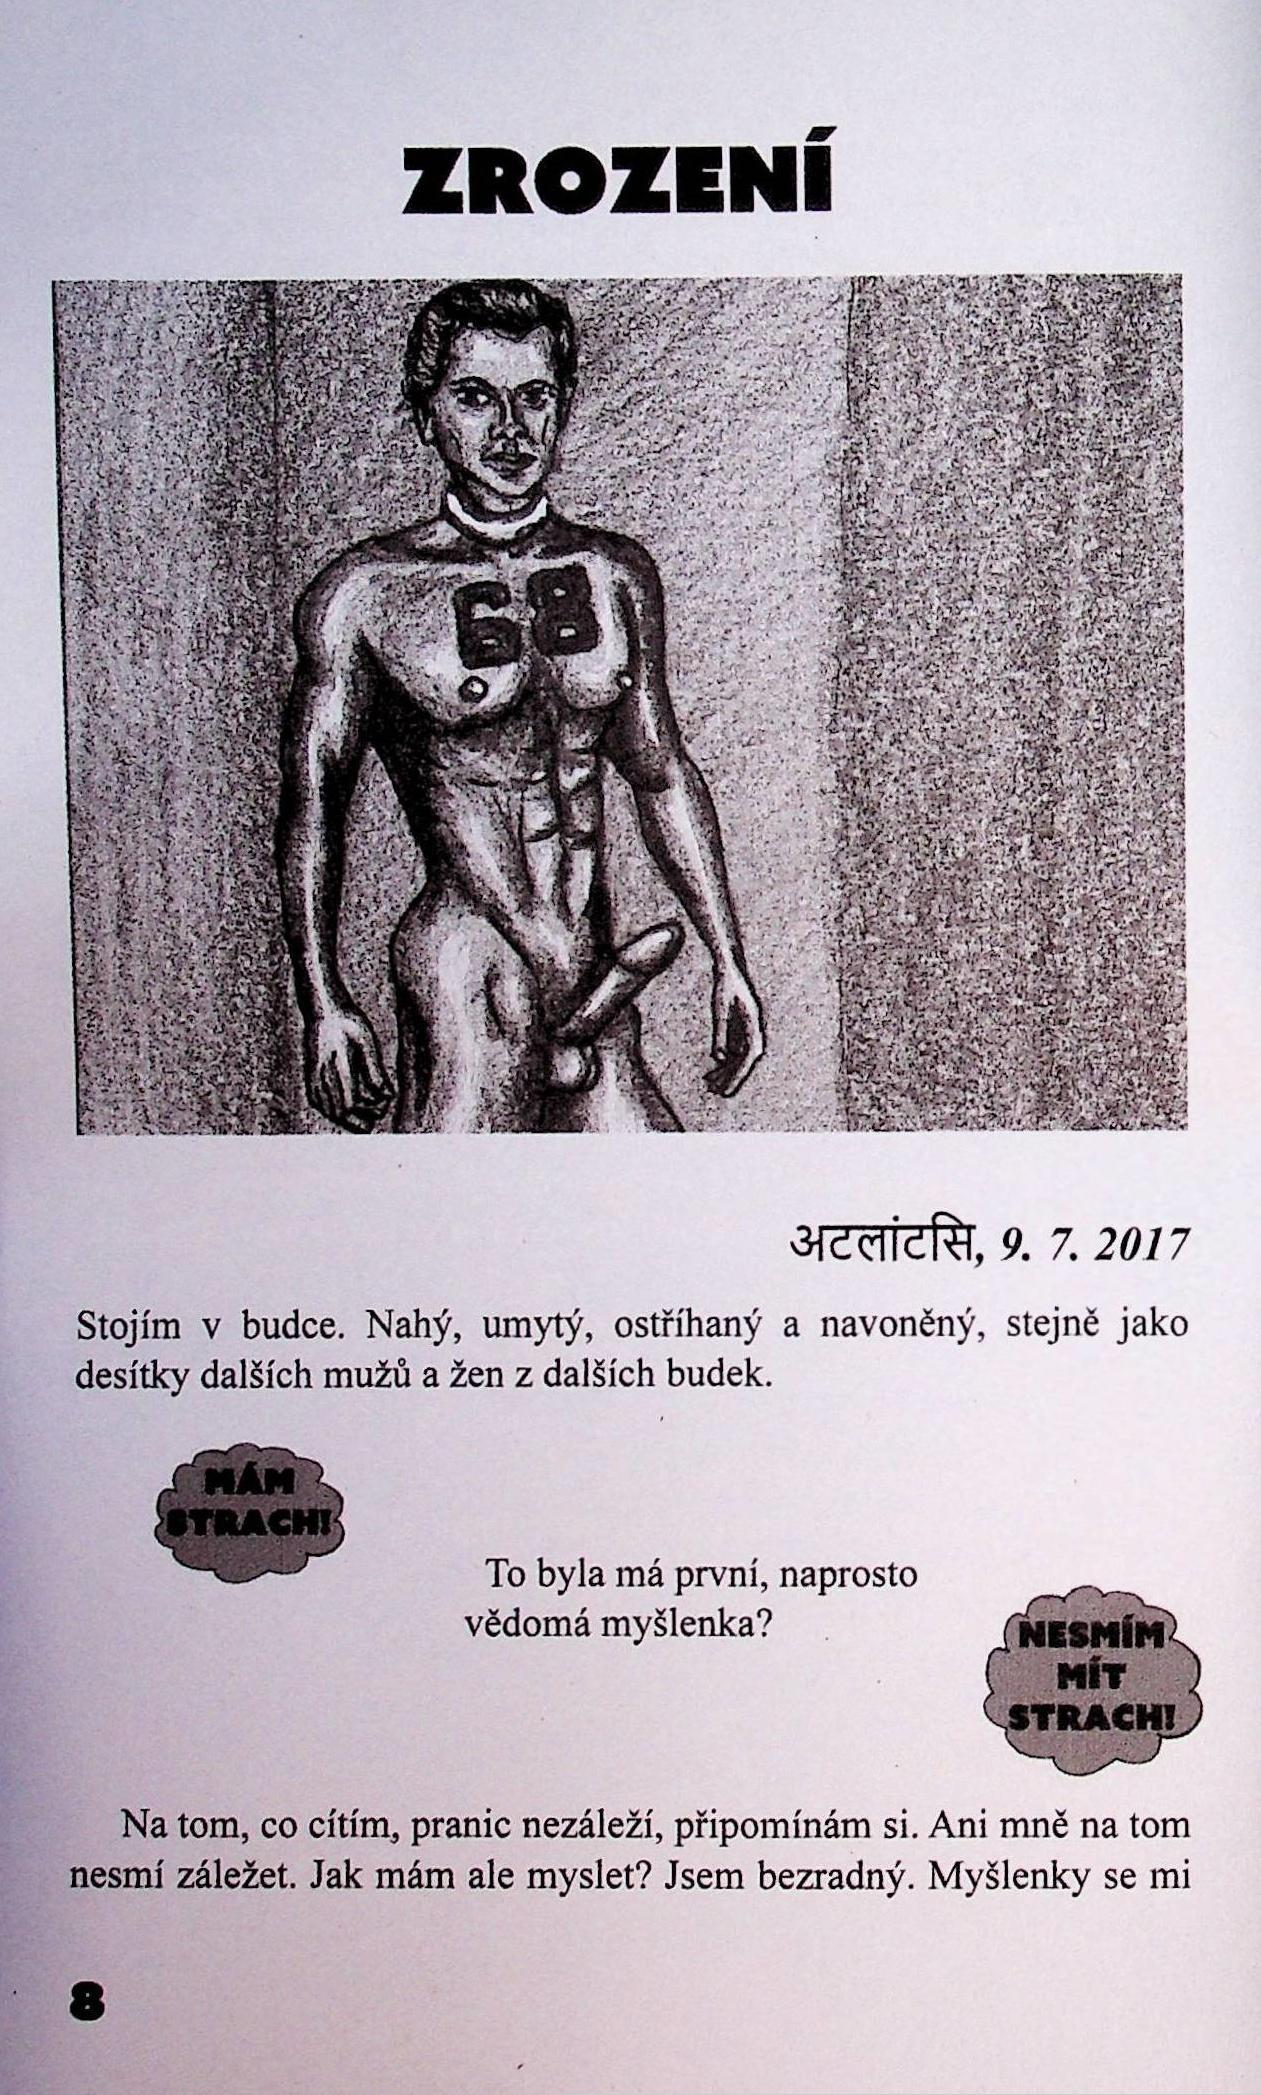 ZROZENÍ
68
अटलांटसि, 9. 7. 2017
Stojím v budce. Nahý, umytý, ostříhaný a navoněný, stejně jako
desítky dalších mužů a žen z dalších budek.
MÁM
STRACH!
To byla má první, naprosto
vědomá myšlenka?
NESMÍM
MÍT
STRACH!
Na tom, co cítím, pranic nezáleží, připomínám si. Ani mně na tom
nesmí záležet. Jak mám ale myslet? Jsem bezradný. Myšlenky se mi
8